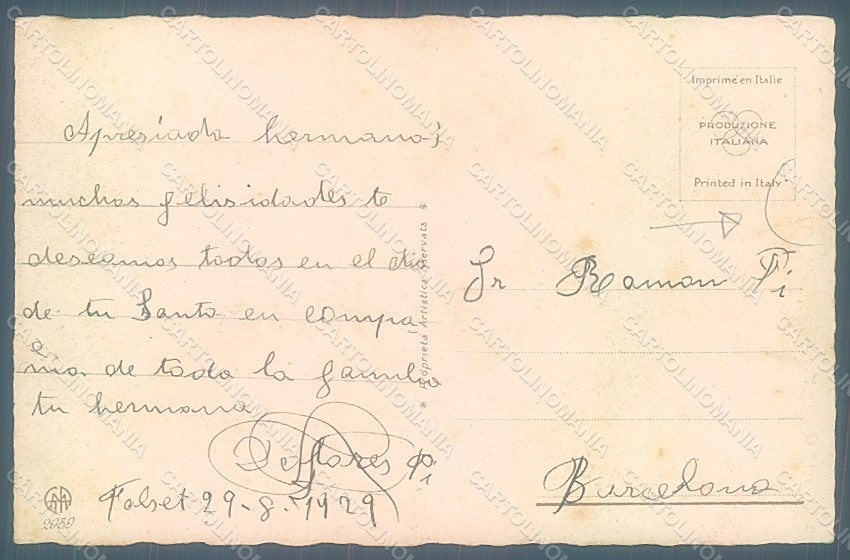 Imprimé en Italie
PRODUZIONE
ITALIANA
Printed in Italy
Apresiado hermano;
muchas felisidades te
deseamos todos en el dia
de tu Santo en compa
ñia de toda la familia
tu hermana
Dolores Pi
Falset 29-8-1929
Proprietà Artistica Riservata
Sr Ramon Pi
Barcelona
2959
CARTOLINOMANIA